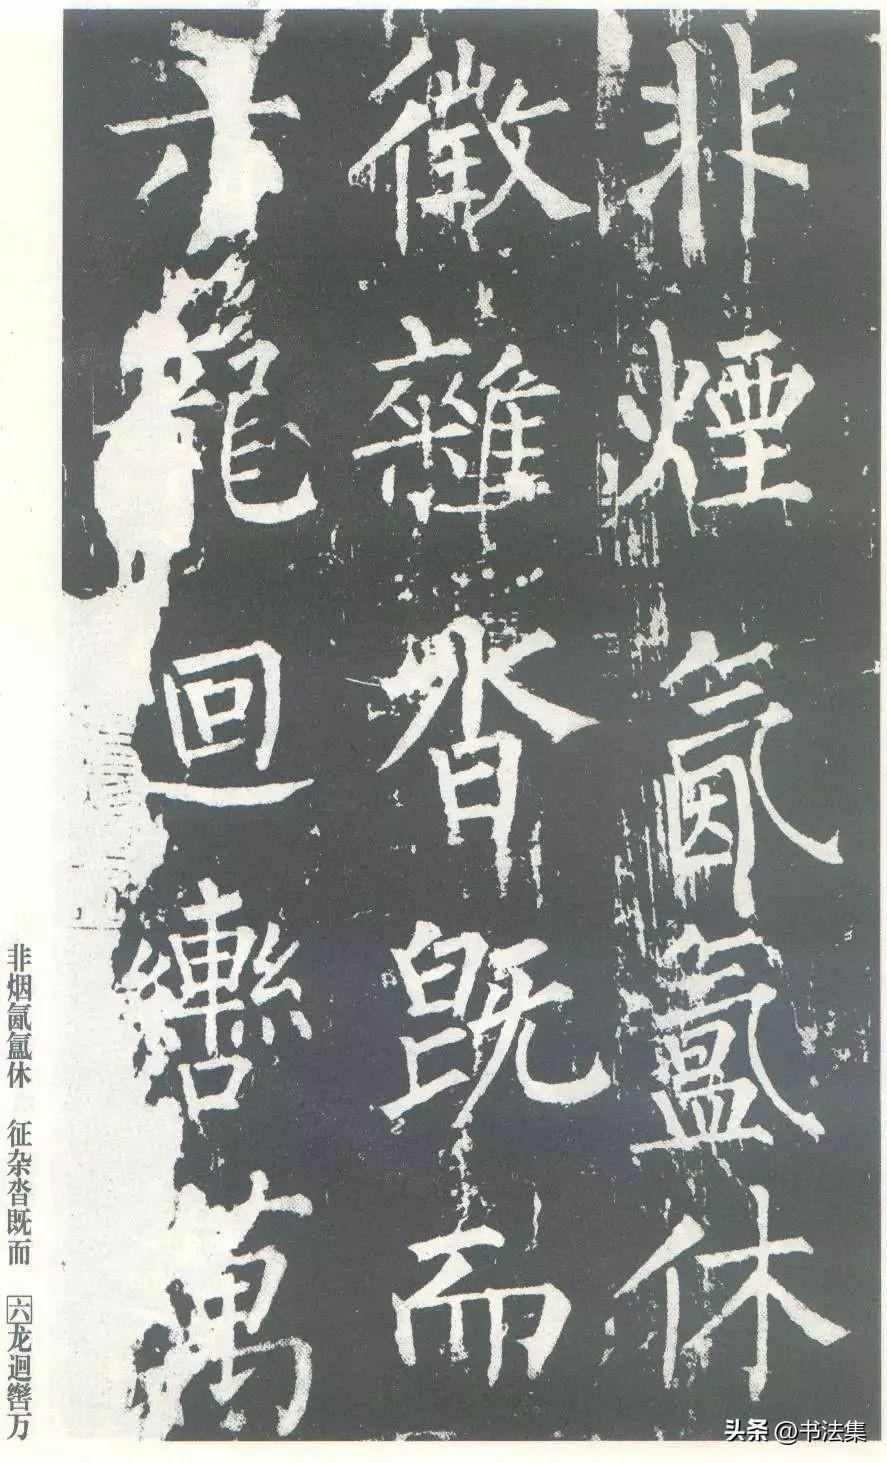 非煙氤氳休
徵雜沓既而
六龍迴轡萬
非烟氤氲休 征杂沓既而 六龙迴辔万
头条 @书法集